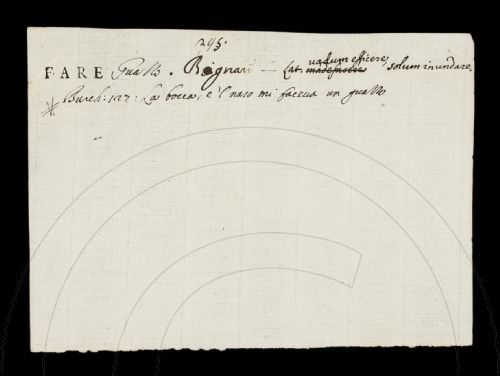 295.
FARE Guazzo. Bagnare — Lat. madefacere vadum efficere, solum inundare.
Burch. 127: La bocca, e 'l naso mi faceva un guazzo